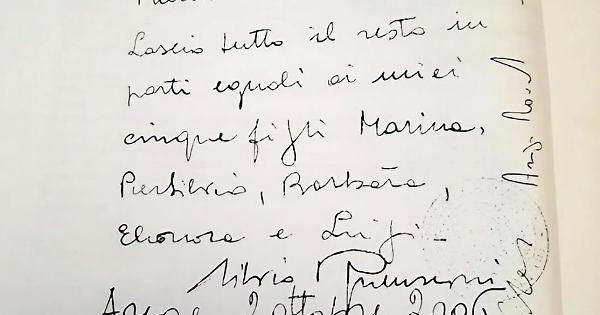 Lascio tutto il resto in
parti eguali ai miei
cinque figli Marina,
Piersilvio, Barbara,
Eleonora e Luigi.
Silvio Berlusconi
2 ottobre 2006